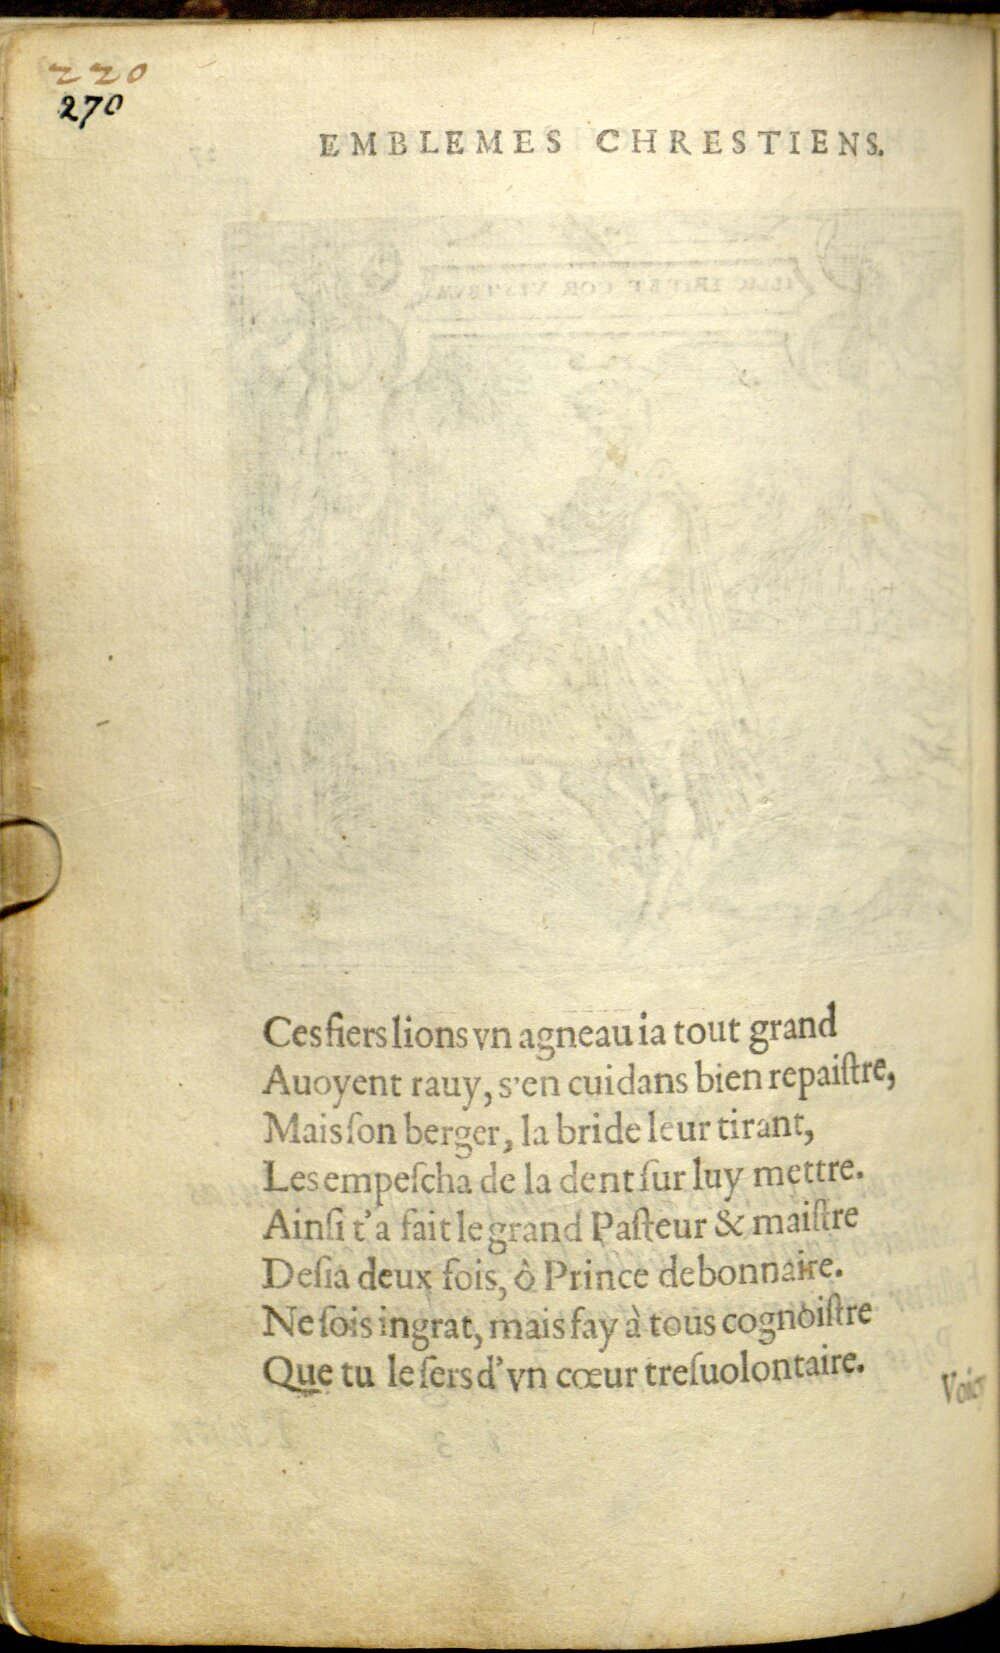 220
270
EMBLEMES CHRESTIENS.
Ces fiers lions vn agneau ia tout grand
Auoyent rauy, s'en cuidans bien repaiſtre,
Mais ſon berger, la bride leur tirant,
Les empeſcha de la dent ſur luy mettre.
Ainſi t'a fait le grand Paſteur & maiſtre
Deſia deux fois, ô Prince debonnaire.
Ne ſois ingrat, mais fay à tous cognoiſtre
Que tu le ſers d'vn cœur treſuolontaire.
Voicy